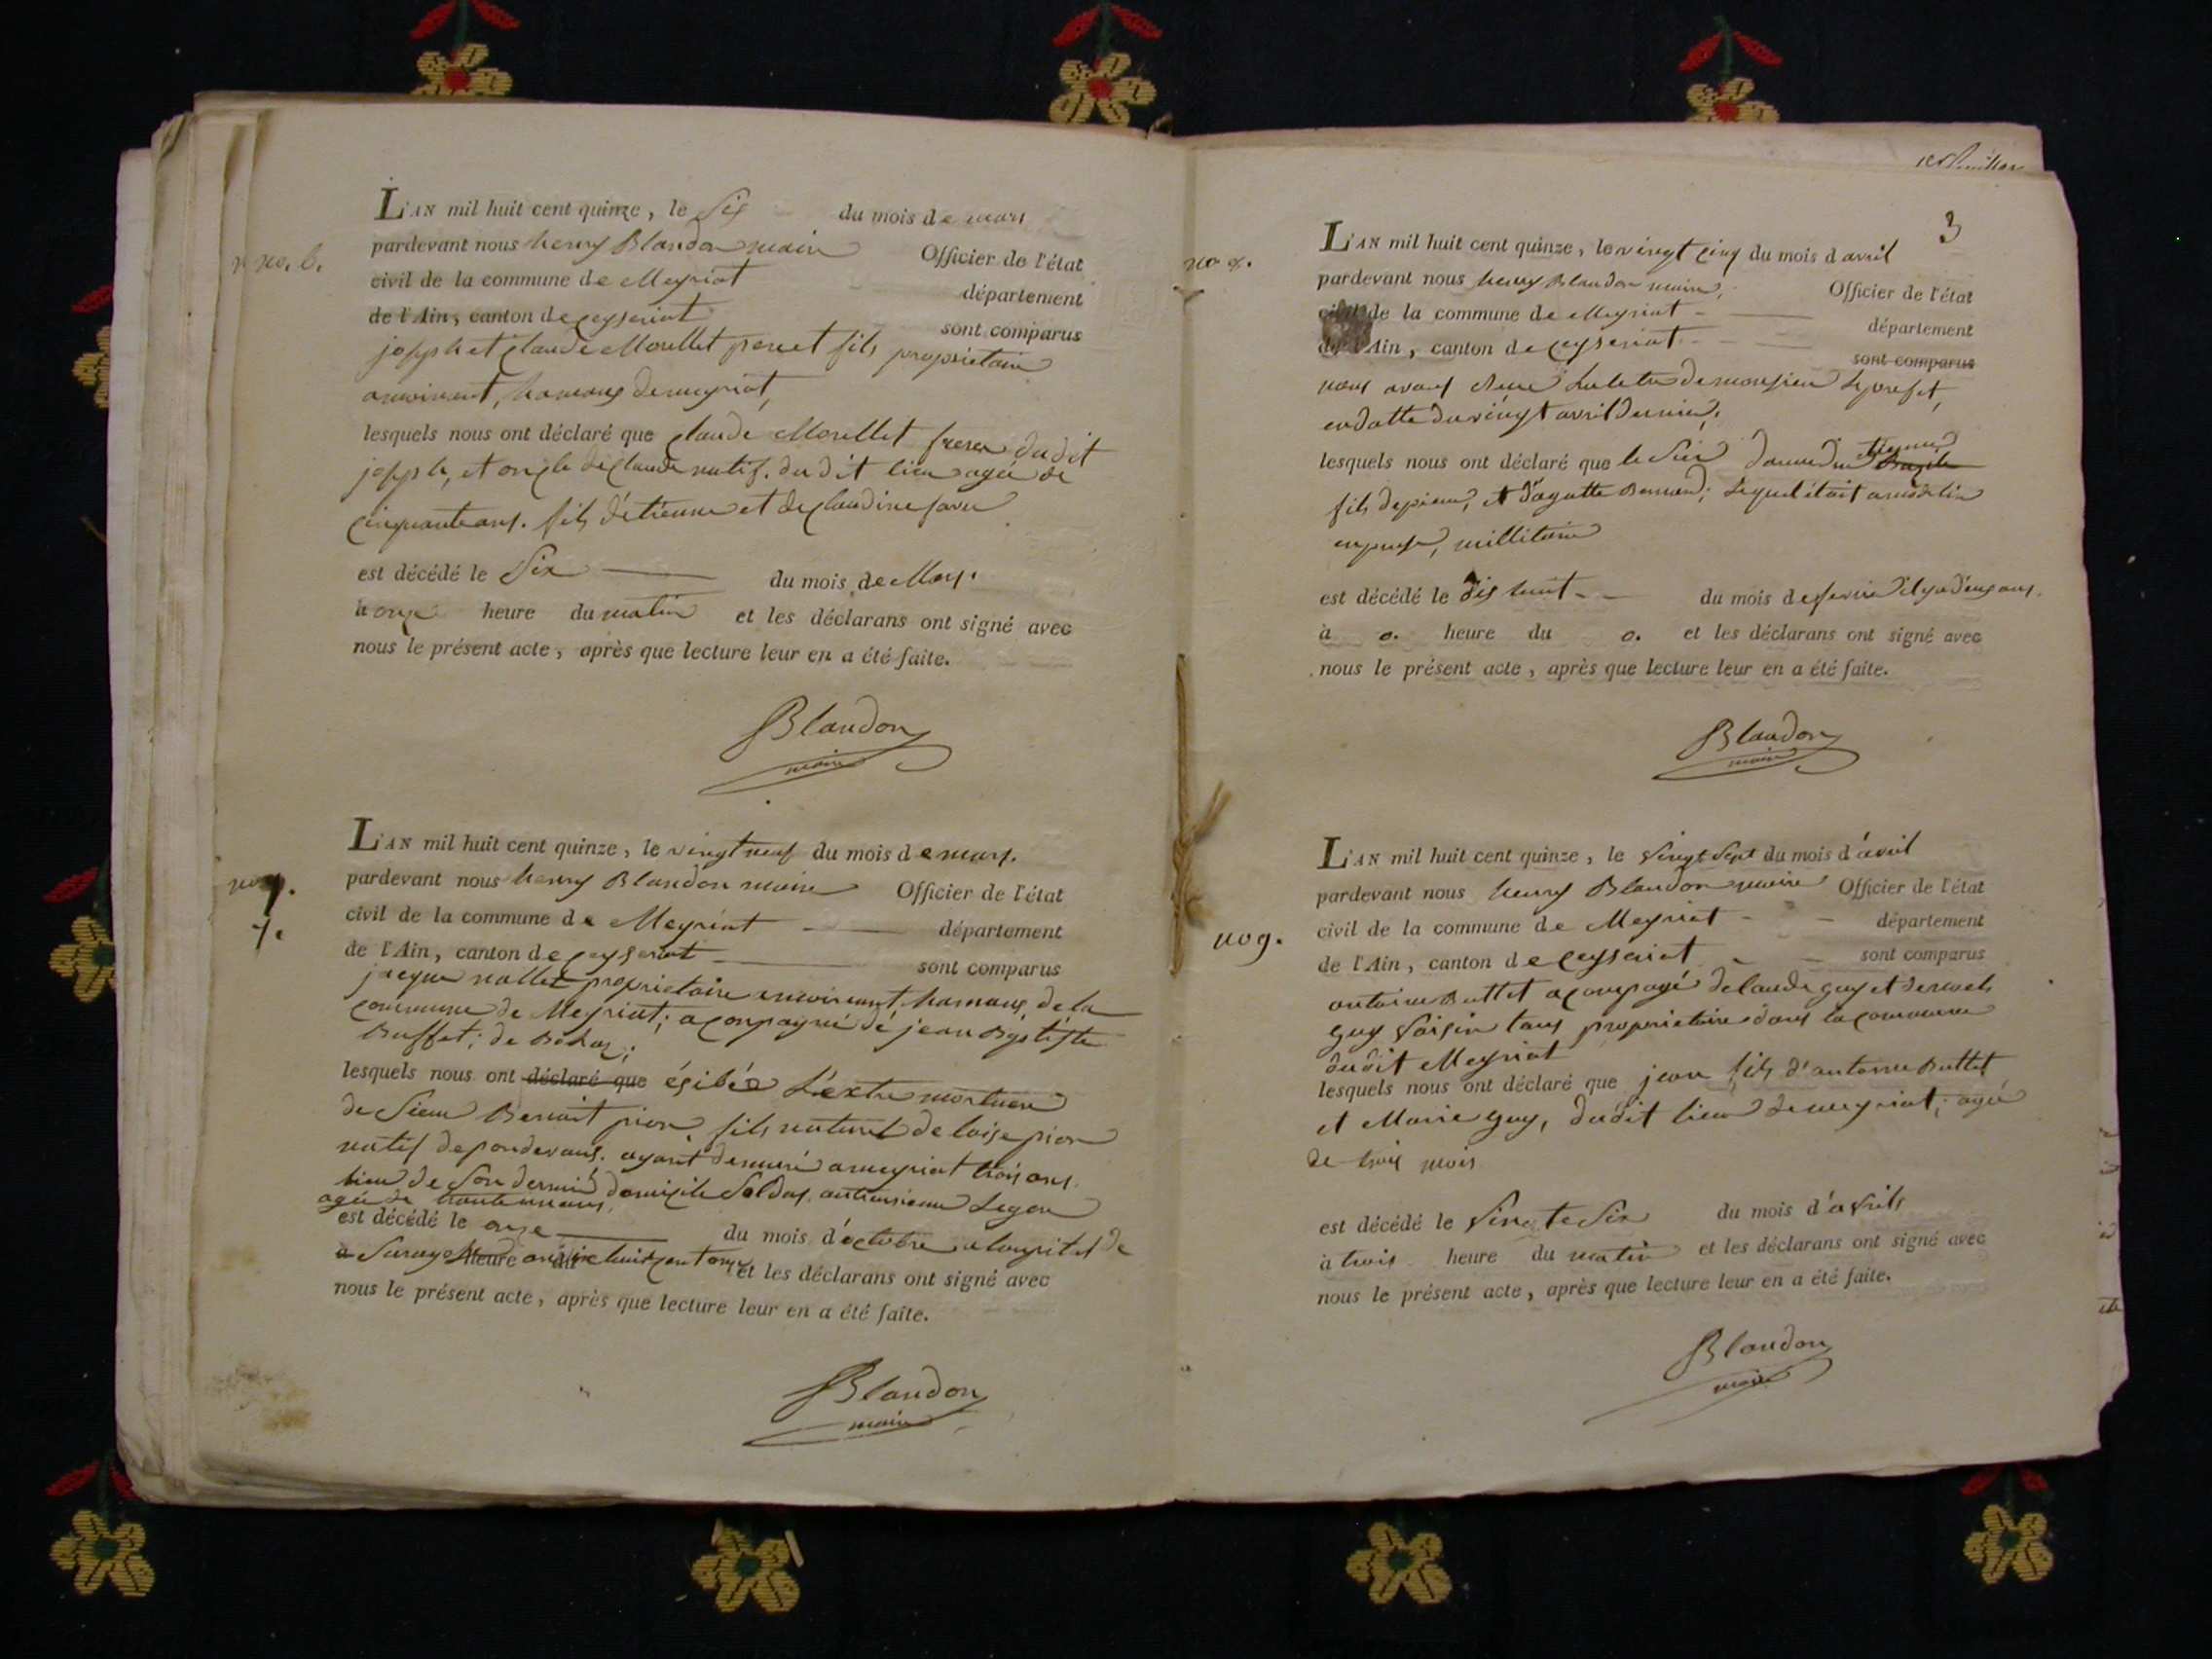 no. 6.
L'AN mil huit cent quinze, le Six du mois de mars
pardevant nous henry Blandon maire Officier de l'état
civil de la commune de Meyriat département
de l'Ain, canton de Ceyseriat sont comparus
joseph et Claude Morellet pere et fils proprietaire
hamaux de meyriat,
lesquels nous ont déclaré que Claude Morellet frere dudit
joseph, et oncle de Claude natif du dit lieu agée de
cinquante ans. fils d'étienne et de Claudine
est décédé le Six du mois de Mars.
à onze heure du matin et les déclarans ont signé avec
nous le présent acte, après que lecture leur en a été faite.
Blandon
maire
no 7.
7.
L'AN mil huit cent quinze, le vingt neuf du mois de mars.
pardevant nous henry Blandon maire Officier de l'état
civil de la commune de Meyriat département
de l'Ain, canton de Ceyseriat sont comparus
jacque nallet proprietaire hamaux de la
commune de Meyriat; acompagné de jean Baptiste
Buffet; de Bohas;
lesquels nous ont déclaré que éxibée L'extre mortuere
de Sieur Benoit pion fils naturel de loise pion
natif de pondevaux. ayant demeuré a meyriat trois ans.
lieu de Son dernié domicile Soldat
agée de
est décédé le onze du mois d'octobre a lospital de
à heure du huit cent onze et les déclarans ont signé avec
nous le présent acte, après que lecture leur en a été faite.
Blandon
maire
3
no 8.
L'AN mil huit cent quinze, le vingt cinq du mois d'avril
pardevant nous henry Blandon maire, Officier de l'état
civil de la commune de Meyriat département
de l'Ain, canton de Ceyseriat sont comparus
nous avons la letre de monsieur Le prefet,
en datte du vingt avril dernier,
lesquels nous ont déclaré que le Sieur étienne
fils de pierre, et d'agatte Bernard; Lequel était
en prusse, millitaire
est décédé le dix huit du mois de fevrié il y a deux ans.
à o. heure du o. et les déclarans ont signé avec
nous le présent acte, après que lecture leur en a été faite.
Blandon
maire
no 9.
L'AN mil huit cent quinze, le vingt Sept du mois d'avril
pardevant nous henry Blandon maire Officier de l'état
civil de la commune de Meyriat département
de l'Ain, canton de Ceyseriat sont comparus
antoine Buttet acompagé de Claude guy et de
guy Voisin tous proprietaire dans la commune
dudit Meyriat
lesquels nous ont déclaré que jean fils d'antoine Buttet
et Marie guy, dudit lieu de meyriat; agée
de trois mois
est décédé le Vingte Six du mois d'avrils
à trois heure du matin et les déclarans ont signé avec
nous le présent acte, après que lecture leur en a été faite.
Blandon
maire